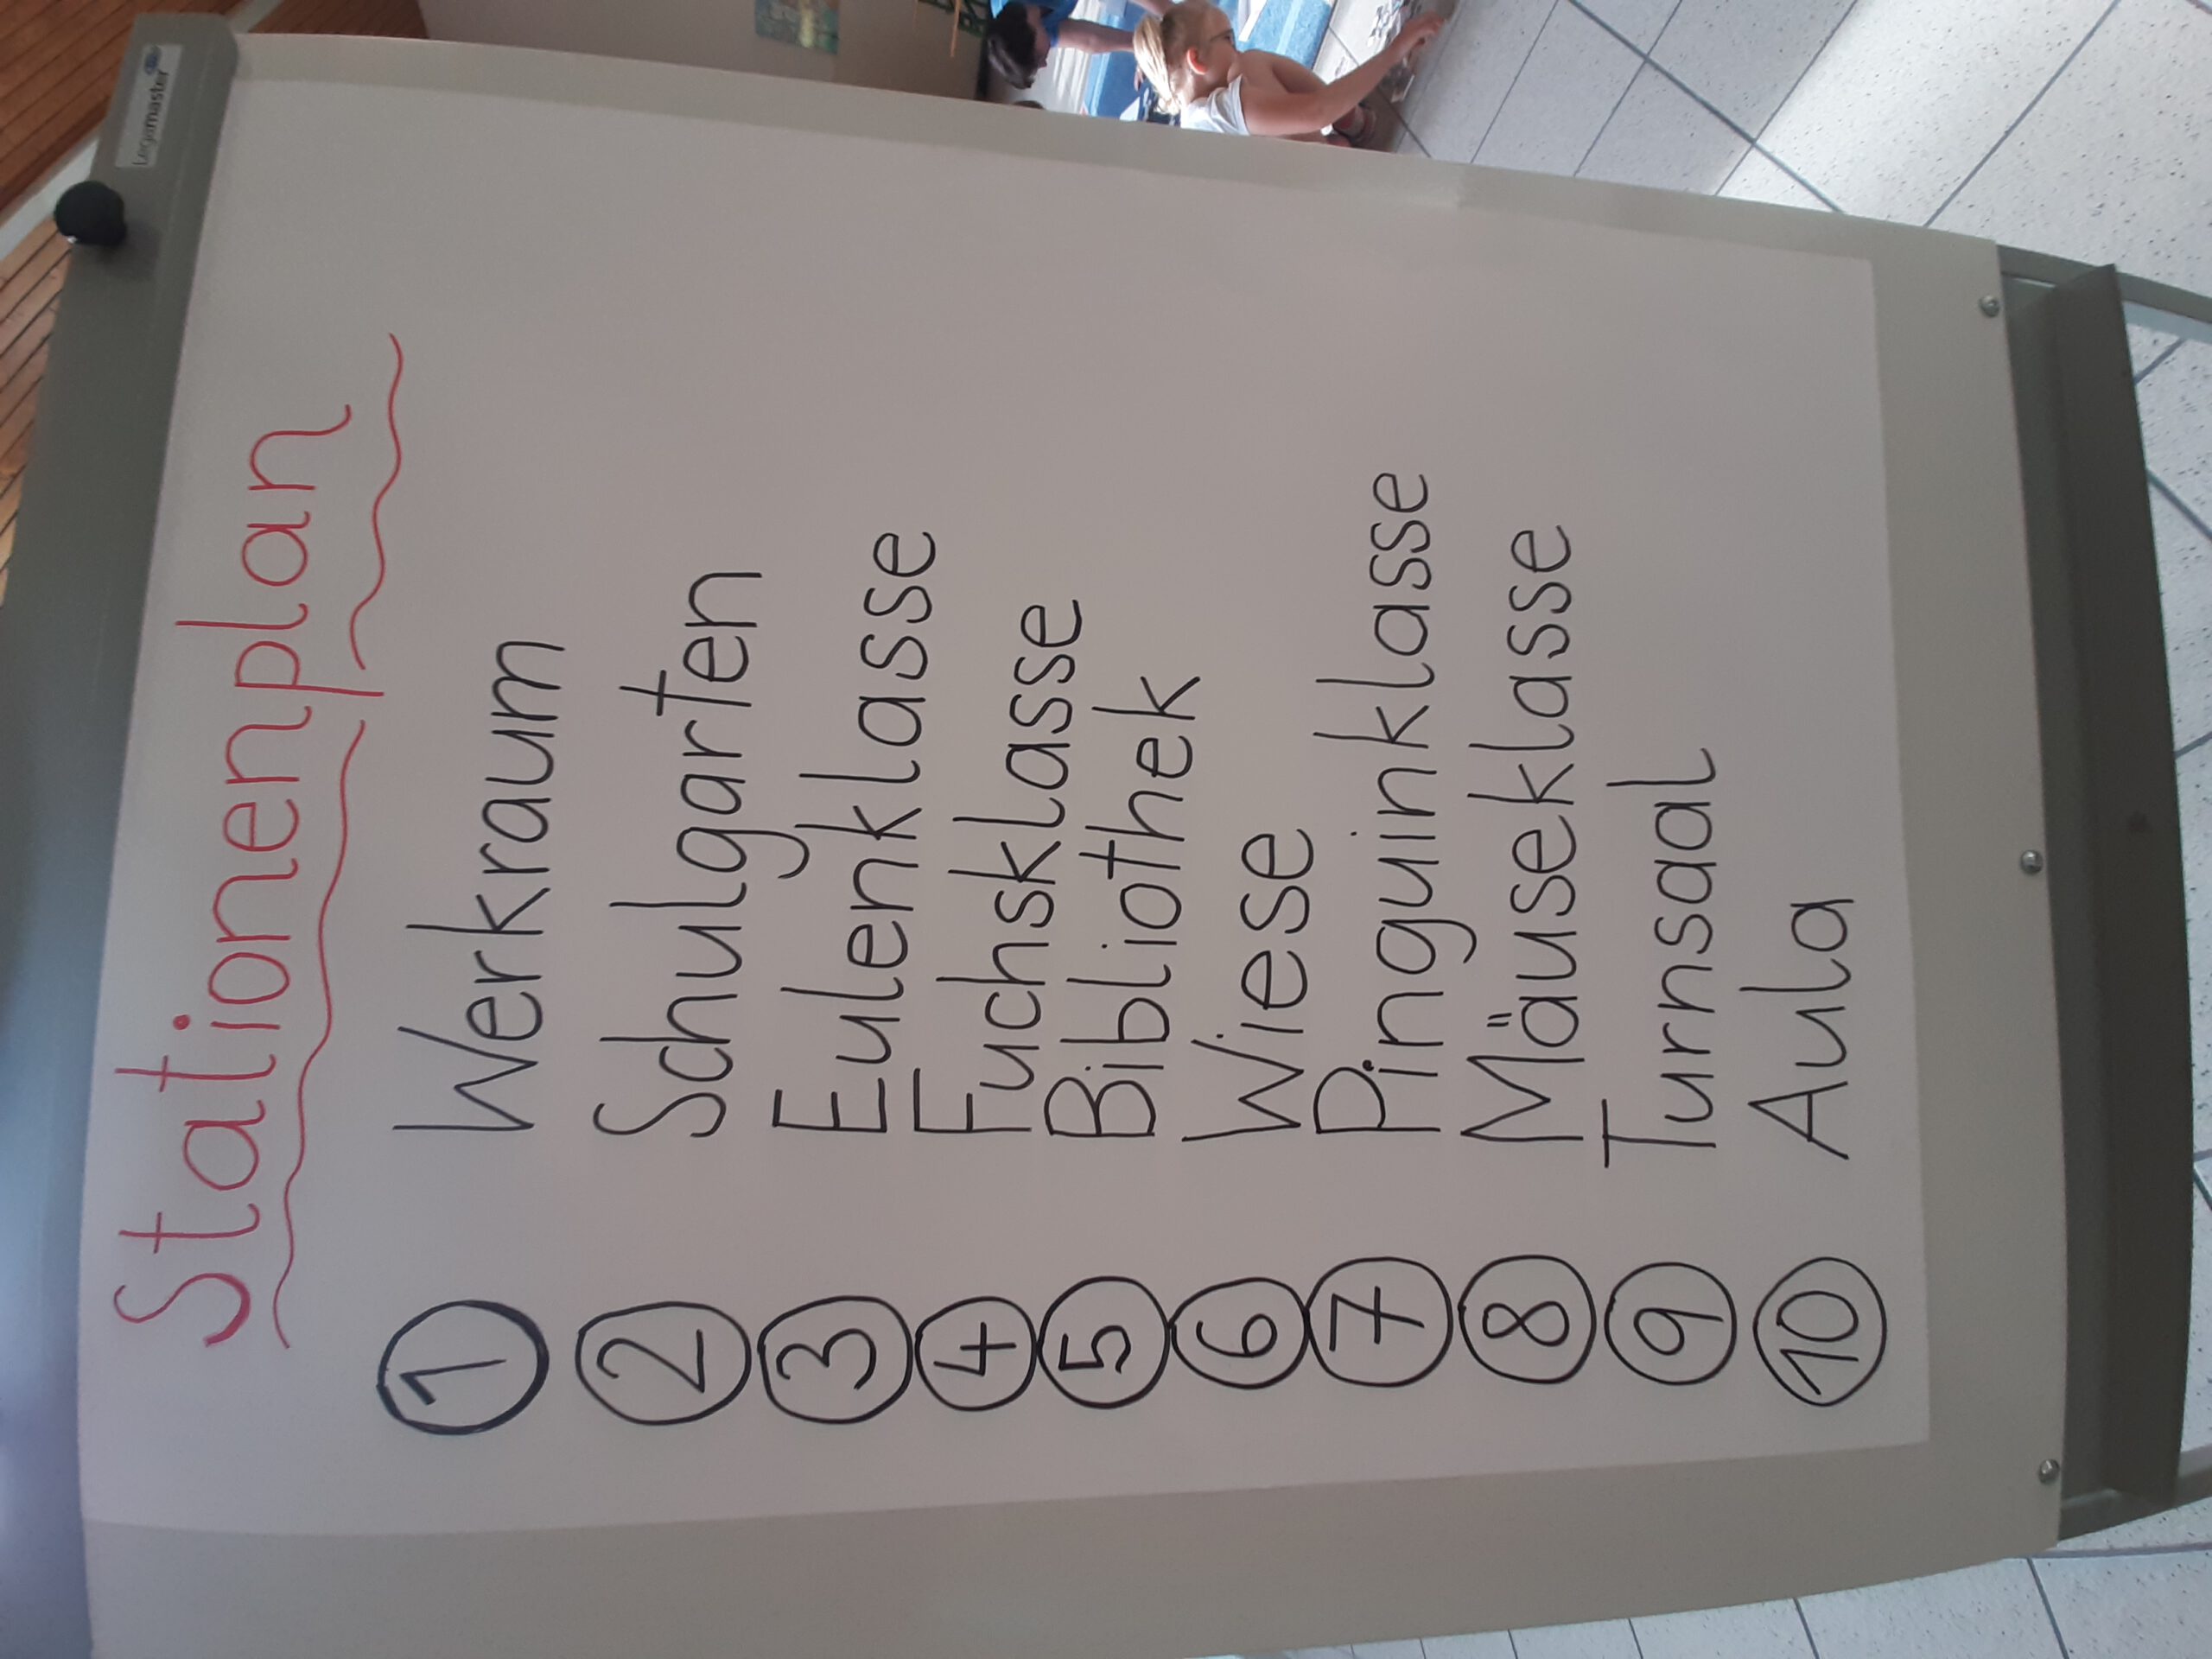 Legamaster
Stationenplan
1 Werkraum
2 Schulgarten
3 Eulenklasse
4 Fuchsklasse
5 Bibliothek
6 Wiese
7 Pinguinklasse
8 Mäuseklasse
9 Turnsaal
10 Aula